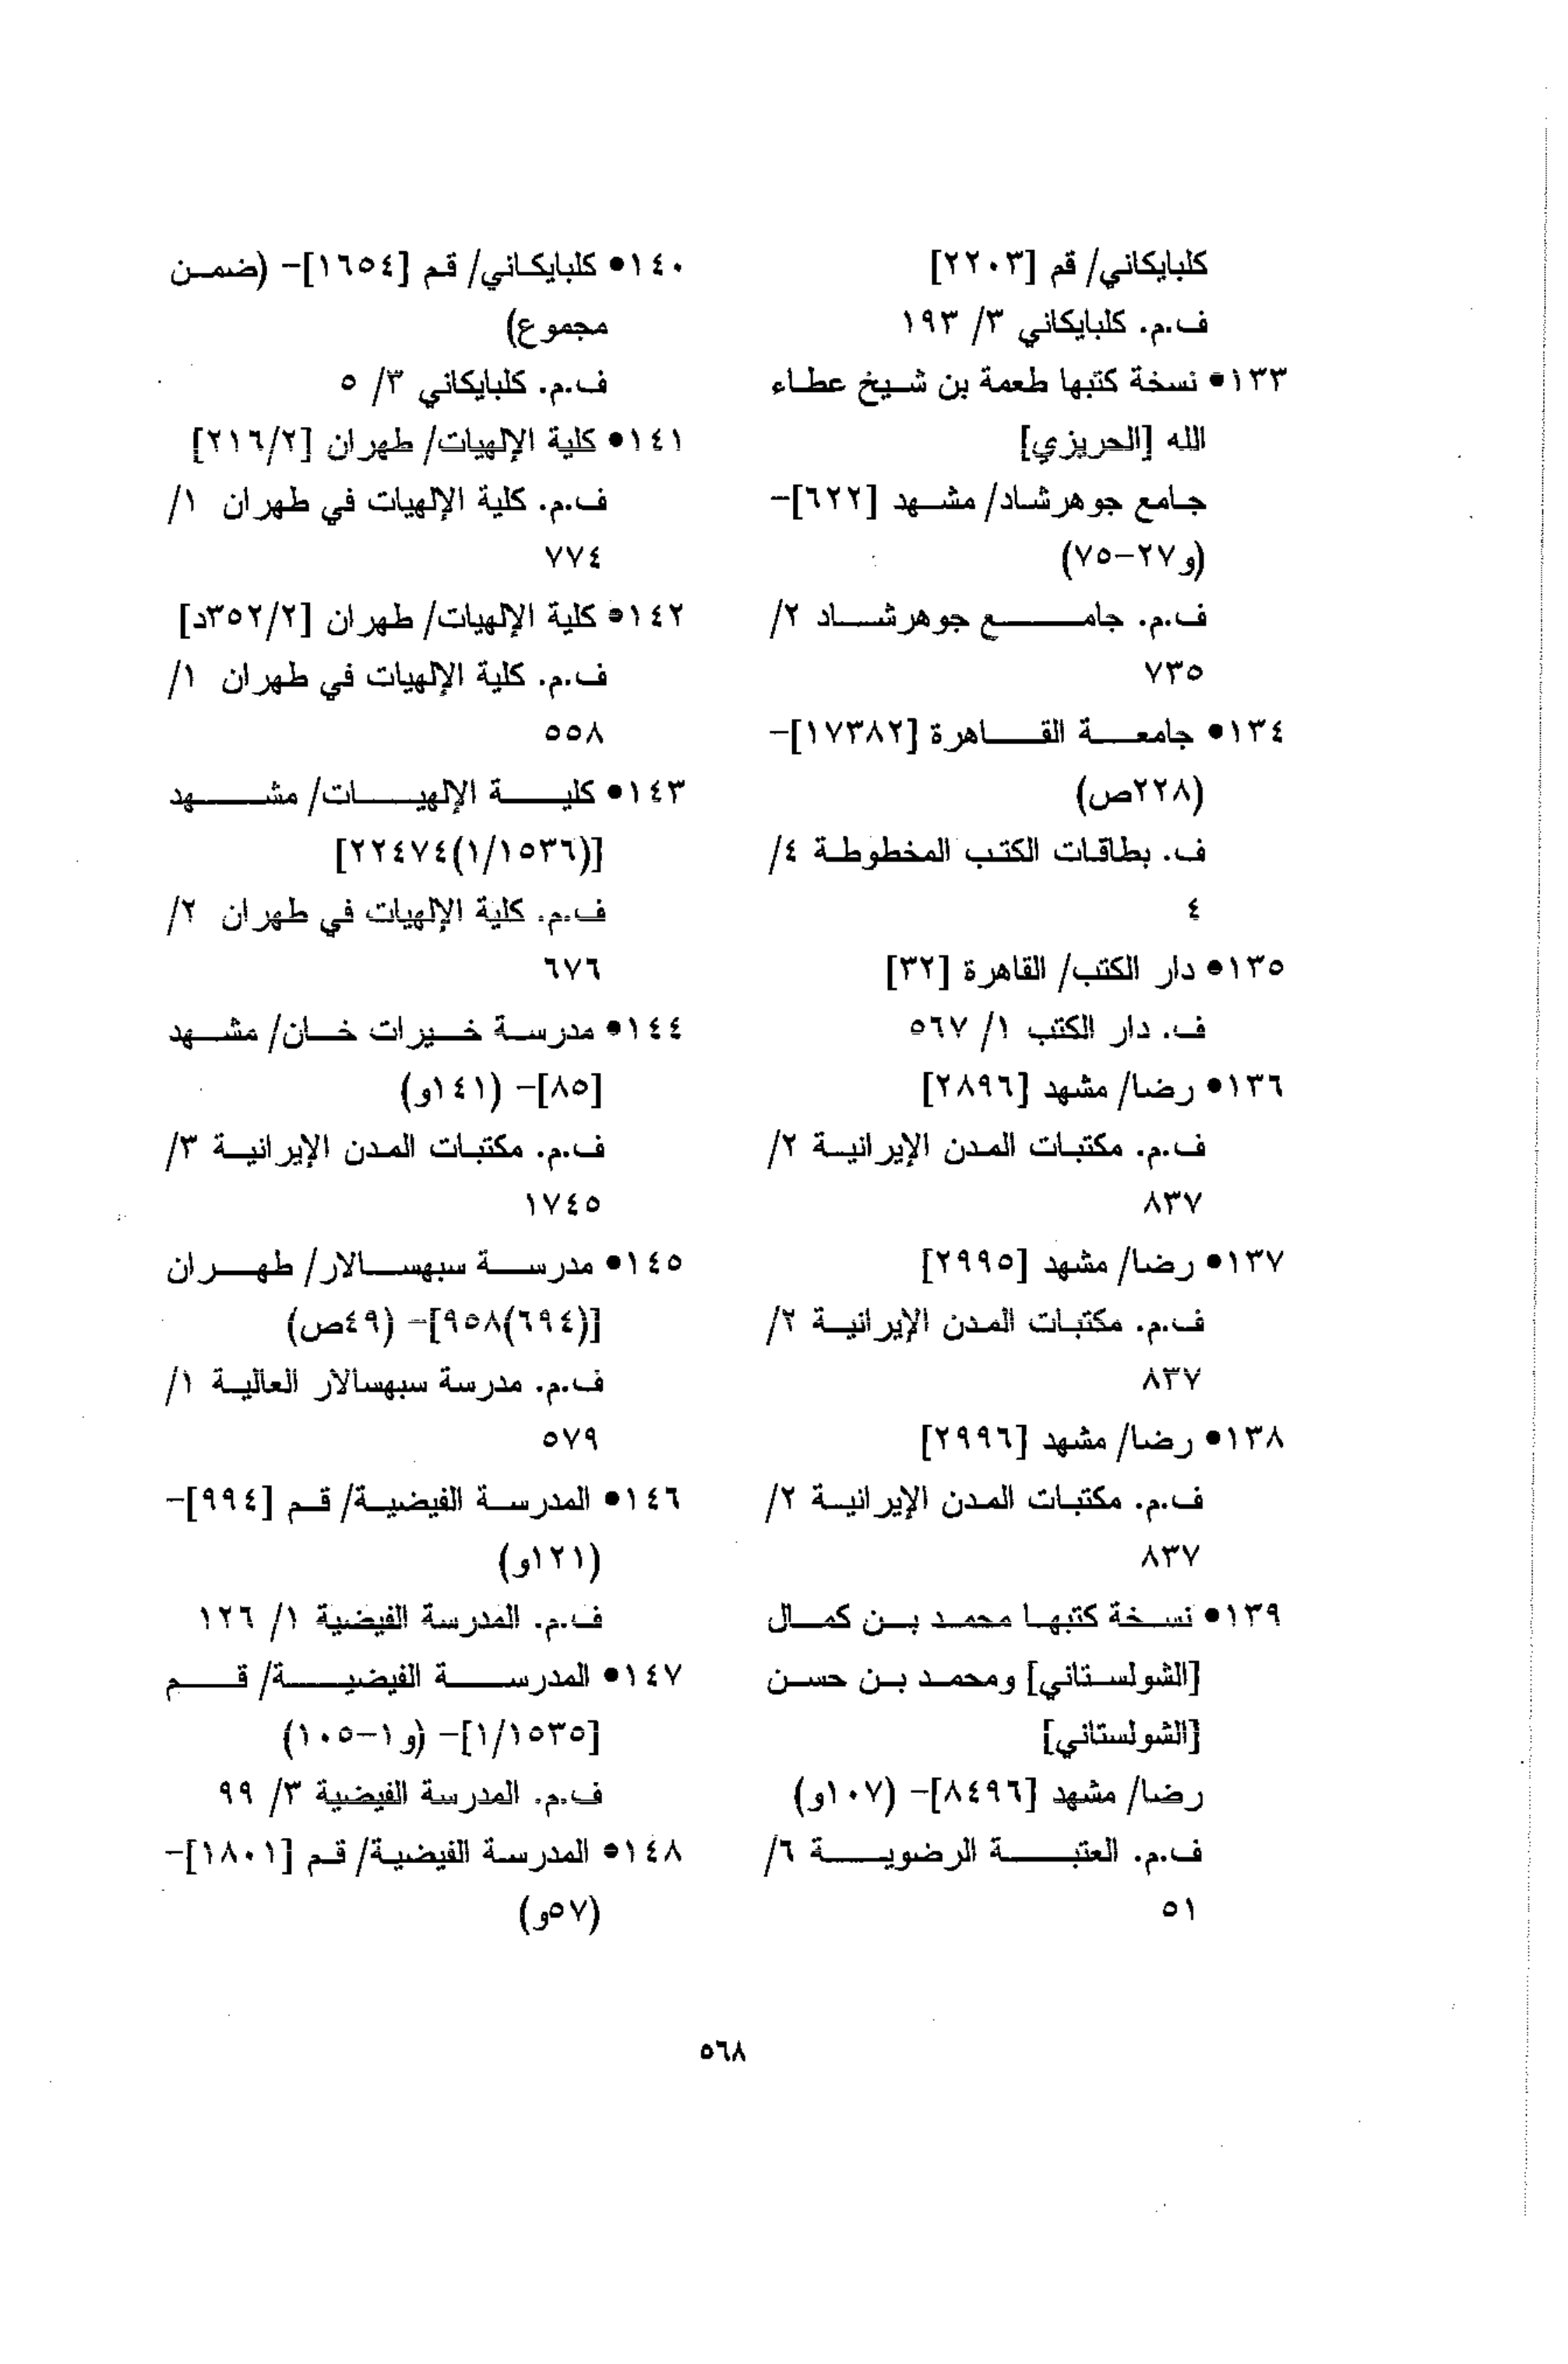 كلبايكاني/ قم [٢٢٠٣]
ف.م. كلبايكاني ٣/ ١٩٣
١٣٣• نسخة كتبها طعمة بن شيخ عطاء
الله [الحريزي]
جامع جوهرشاد/ مشهد [٦٢٢]-
(و٢٧-٧٥)
ف.م. جامع جوهرشاد ٢/
٧٣٥
١٣٤• جامعة القاهرة [١٧٣٨٢]-
(٢٢٨ص)
ف. بطاقات الكتب المخطوطة ٤/
٤
١٣٥• دار الكتب/ القاهرة [٣٢]
ف. دار الكتب ١/ ٥٦٧
١٣٦• رضا/ مشهد [٢٨٩٦]
ف.م. مكتبات المدن الإيرانية ٢/
٨٣٧
١٣٧• رضا/ مشهد [٢٩٩٥]
ف.م. مكتبات المدن الإيرانية ٢/
٨٣٧
١٣٨• رضا/ مشهد [٢٩٩٦]
ف.م. مكتبات المدن الإيرانية ٢/
٨٣٧
١٣٩• نسخة كتبها محمد بن كمال
[الشولستاني] ومحمد بن حسن
[الشولستاني]
رضا/ مشهد [٨٤٩٦]- (١٠٧و)
ف.م. العتبة الرضوية ٦/
٥١
١٤٠• كلبايكاني/ قم [١٦٥٤]- (ضمن
مجموع)
ف.م. كلبايكاني ٣/ ٥
١٤١• كلية الإلهيات/ طهران [٢١٦/٢]
ف.م. كلية الإلهيات في طهران ١/
٧٧٤
١٤٢• كلية الإلهيات/ طهران [٣٥٢/٢د]
ف.م. كلية الإلهيات في طهران ١/
٥٥٨
١٤٣• كلية الإلهيات/ مشهد
[(١/١٥٣٦)٢٢٤٧٤]
ف.م. كلية الإلهيات في طهران ٢/
٦٧٦
١٤٤• مدرسة خيرات خان/ مشهد
[٨٥]- (١٤١و)
ف.م. مكتبات المدن الإيرانية ٣/
١٧٤٥
١٤٥• مدرسة سبهسالار/ طهران
[(٦٩٤)٩٥٨]- (٤٩ص)
ف.م. مدرسة سبهسالار العالية ١/
٥٧٩
١٤٦• المدرسة الفيضية/ قم [٩٩٤]-
(١٢١و)
ف.م. المدرسة الفيضية ١/ ١٢٦
١٤٧• المدرسة الفيضية/ قم
[١/١٥٣٥]- (و١-١٠٥)
ف.م. المدرسة الفيضية ٣/ ٩٩
١٤٨• المدرسة الفيضية/ قم [١٨٠١]-
(٥٧و)
٥٦٨